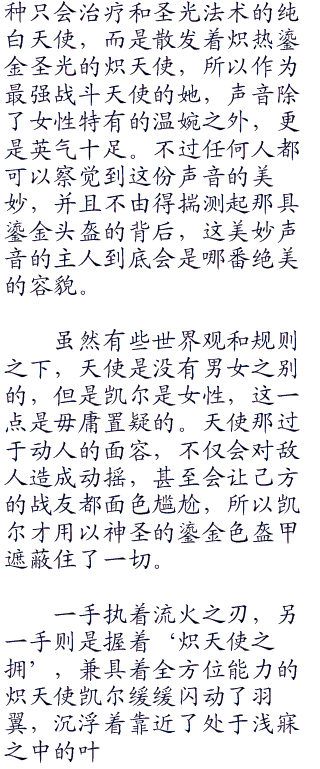 种只会治疗和圣光法术的纯
白天使，而是散发着炽热鎏
金圣光的炽天使，所以作为
最强战斗天使的她，声音除
了女性特有的温婉之外，更
是英气十足。不过任何人都
可以察觉到这份声音的美
妙，并且不由得揣测起那具
鎏金头盔的背后，这美妙声
音的主人到底会是哪番绝美
的容貌。
虽然有些世界观和规则
之下，天使是没有男女之别
的，但是凯尔是女性，这一
点是毋庸置疑的。天使那过
于动人的面容，不仅会对敌
人造成动摇，甚至会让己方
的战友都面色尴尬，所以凯
尔才用以神圣的鎏金色盔甲
遮蔽住了一切。
一手执着流火之刃，另
一手则是握着‘炽天使之
拥’，兼具着全方位能力的
炽天使凯尔缓缓闪动了羽
翼，沉浮着靠近了处于浅寐
之中的叶